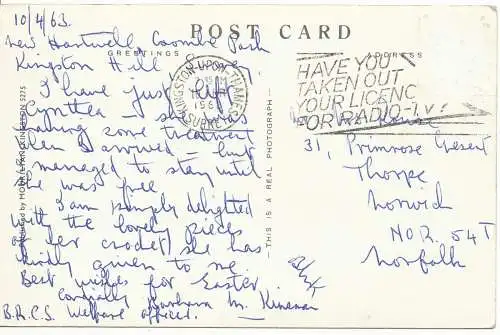 10/4/63.
POST CARD
New Hartwell, Coombe Park
GREETINGS
ADDRESS
Kingston Hill
I have just left
Cynthea - she was
having some treatment
when I arrived - but
managed to stay until
she was free.
I am simply delighted
with the lovely pieces
of her crochet she has
kindly given to me.
Best wishes for Easter,
cordially
Barbara M. Kinenan
B.R.C.S. Welfare Officer.
KINGSTON-UPON-THAMES
SURREY
HAVE YOU
TAKEN OUT
YOUR LICENC
FOR RADIO-T.V?
31, Primrose Cresent
Thorpe
Norwich
NOR. 54T
Norfolk
— THIS IS A REAL PHOTOGRAPH —